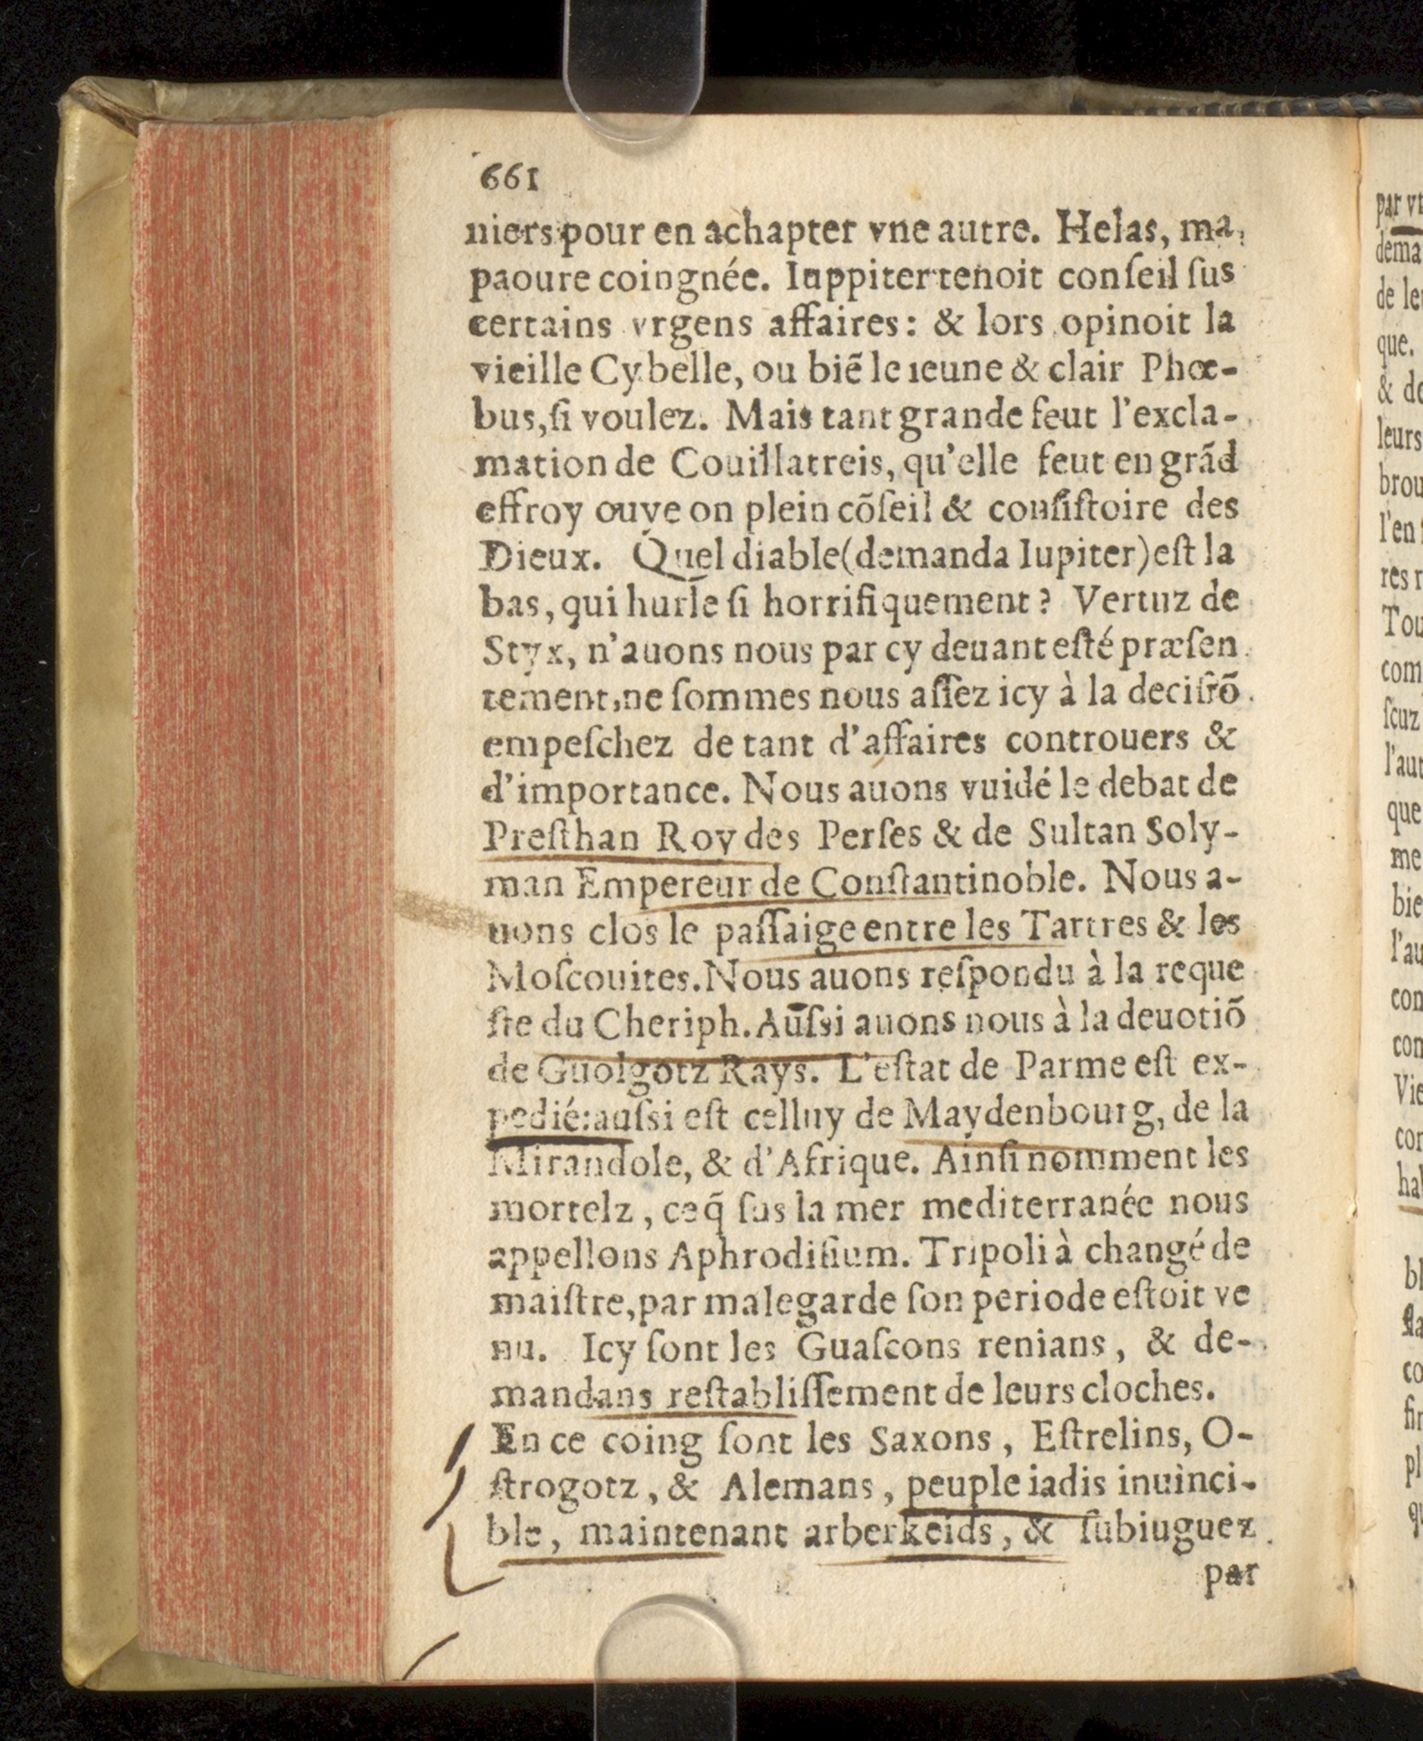 661
niers pour en achapter vne autre. Helas, ma
paoure coingnée. Iuppiter tenoit conſeil ſus
certains vrgens affaires: & lors opinoit la
vieille Cybelle, ou biẽ le ieune & clair Phœ-
bus, ſi voulez. Mais tant grande feut l'excla-
mation de Couillatreis, qu'elle feut en grãd
effroy ouye on plein cõſeil & conſiſtoire des
Dieux. Quel diable (demanda Iupiter) eſt la
bas, qui hurle ſi horrifiquement? Vertuz de
Styx, n'auons nous par cy deuant eſté præſen
tement, ne ſommes nous aſſez icy à la deciſiõ
empeſchez de tant d'affaires controuers &
d'importance. Nous auons vuidé le debat de
Preſthan Roy des Perſes & de Sultan Soly-
man Empereur de Conſtantinoble. Nous a-
uons clos le paſſaige entre les Tartres & les
Moſcouites. Nous auons reſpondu à la reque
ſte du Cheriph. Auſsi auons nous à la deuotiõ
de Guolgotz Rays. L'eſtat de Parme eſt ex-
pedié: auſsi eſt celluy de Maydenbourg, de la
Mirandole, & d'Afrique. Ainſi nomment les
mortelz, ce q̃ ſus la mer mediterranée nous
appellons Aphrodiſium. Tripoli à changé de
maiſtre, par malegarde ſon periode eſtoit ve
nu. Icy ſont les Guaſcons renians, & de-
mandans reſtabliſſement de leurs cloches.
En ce coing ſont les Saxons, Eſtrelins, O-
ſtrogotz, & Alemans, peuple iadis inuinci-
ble, maintenant arberkeids, & ſubiuguez
par
par
dema
de le
que.
& de
leurs
brou
l'en
res
Tou
com
ſcuz
l'aut
que
me
bie
l'au
con
con
Vie
cor
ha
bl
co
pl